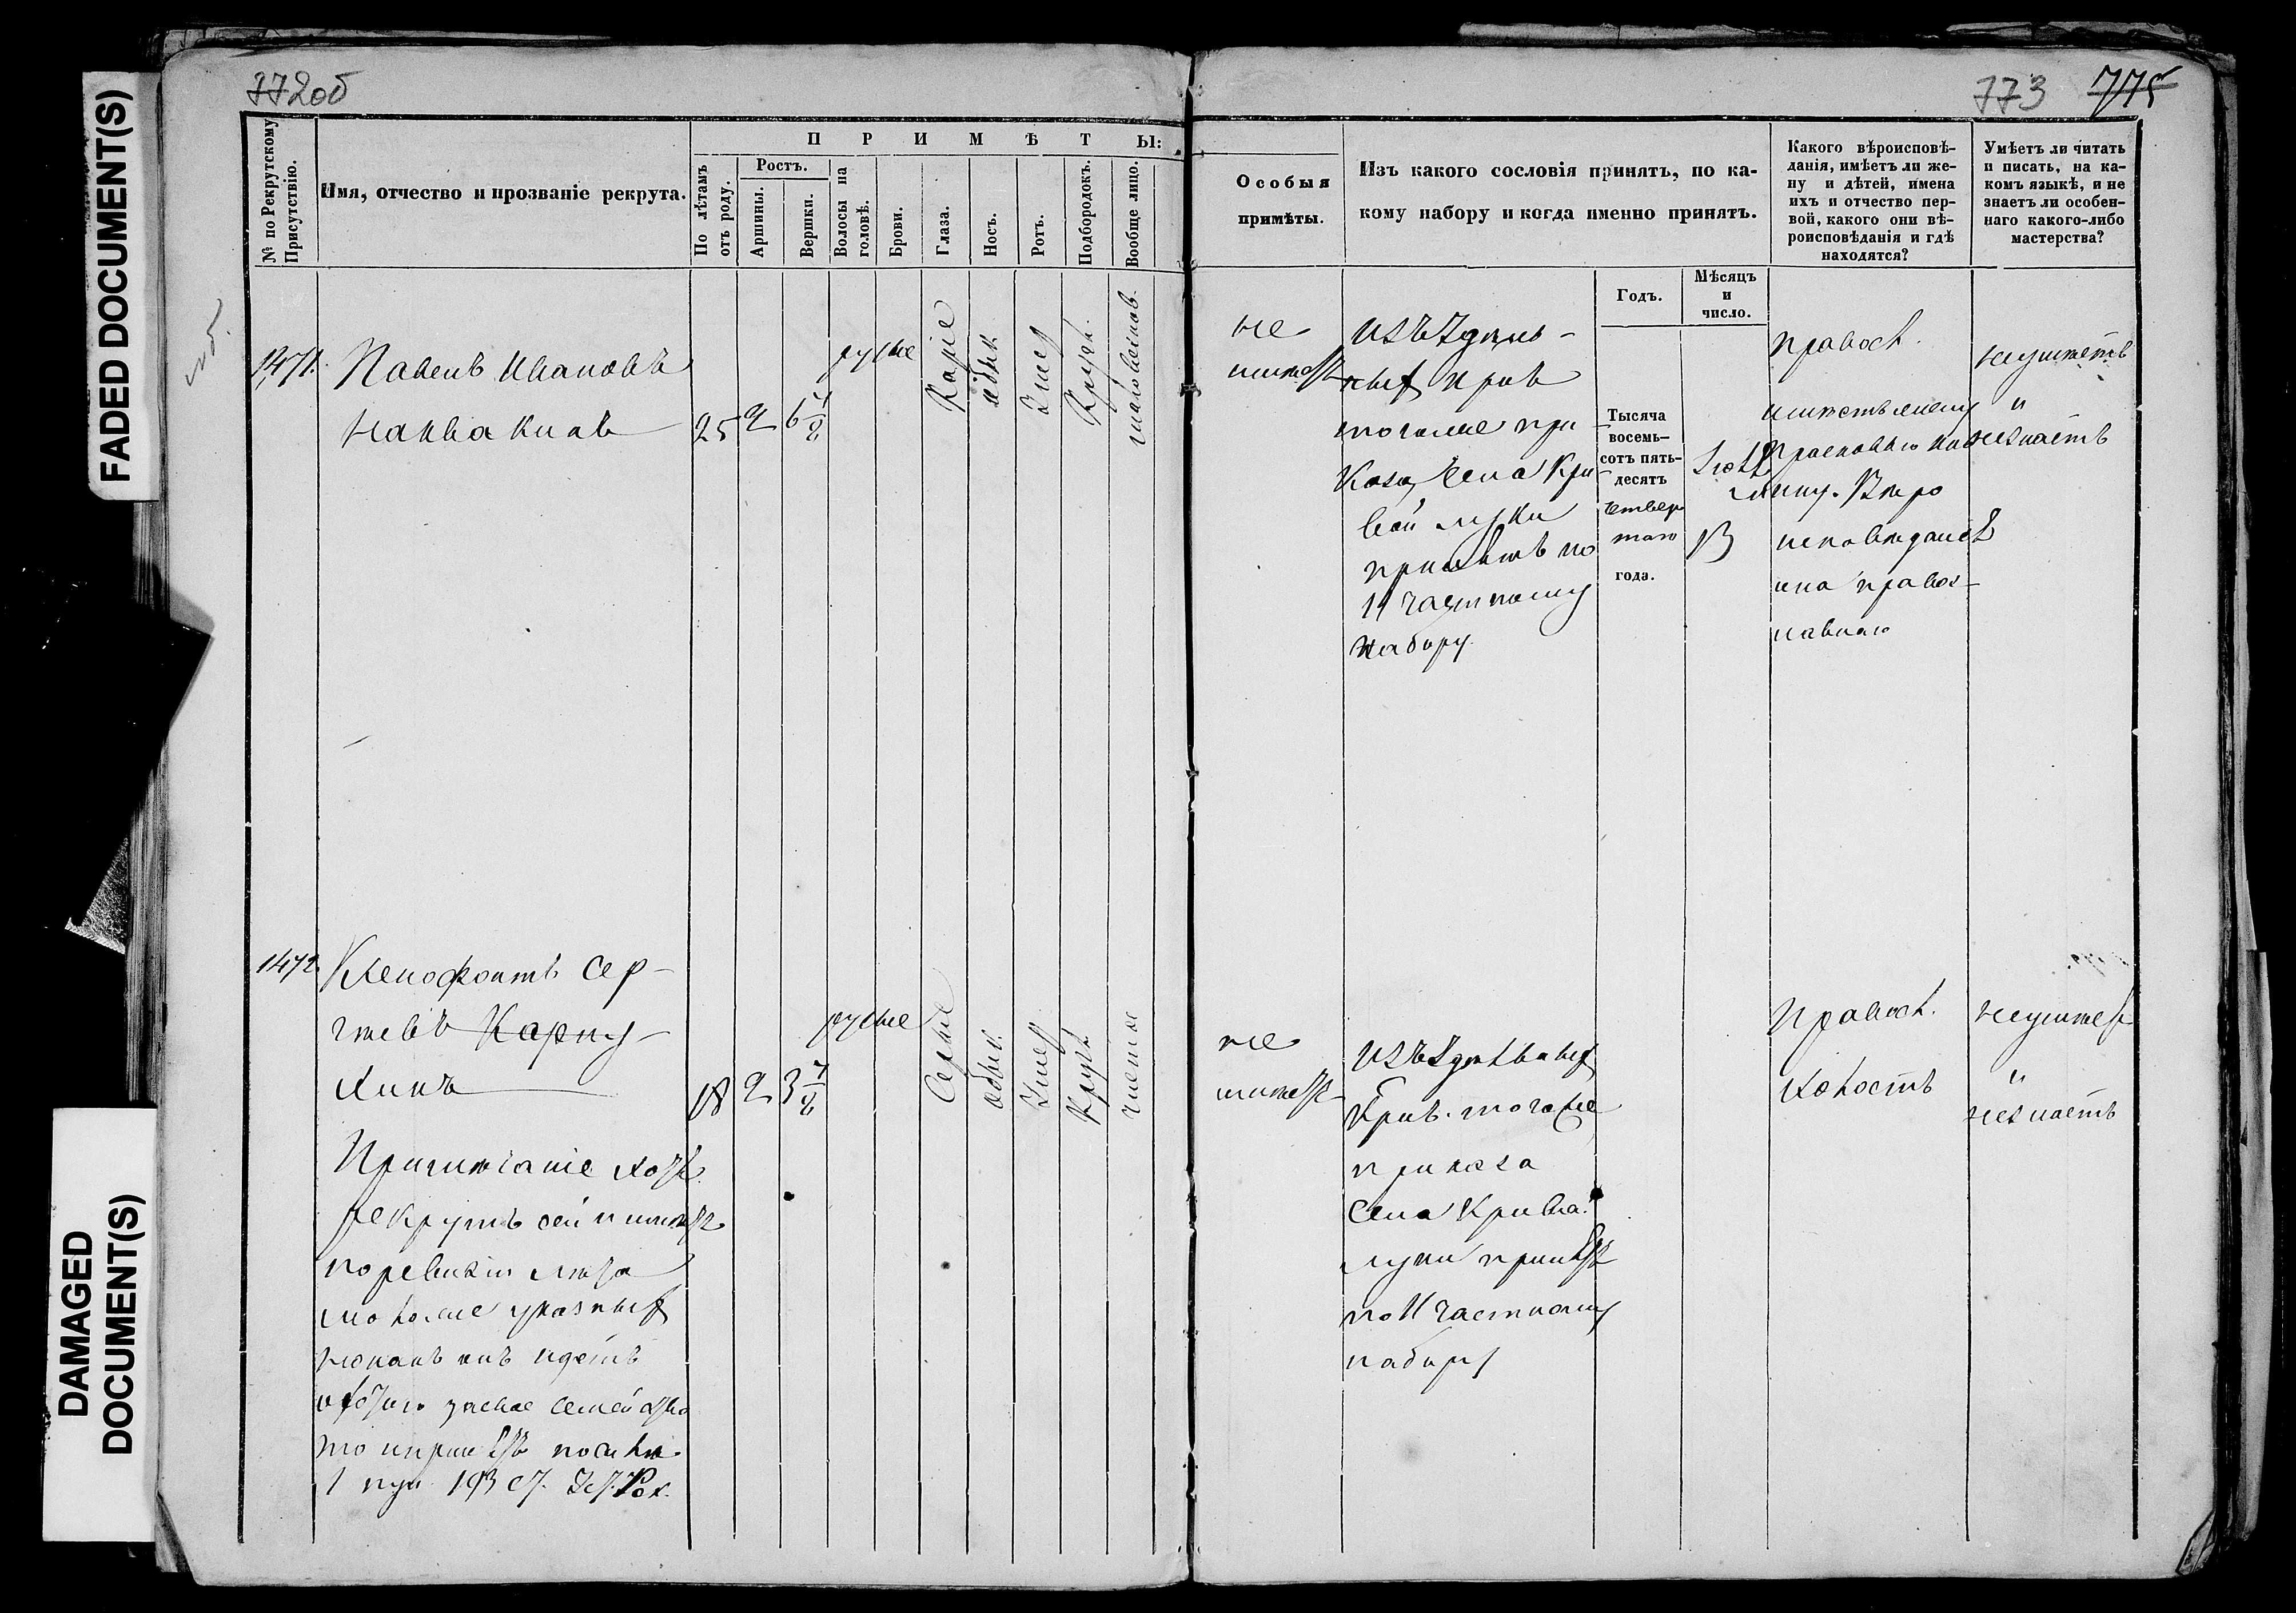 FADED DOCUMENT(S)
DAMAGED DOCUMENT(S)
772об
773 775
№ по Рекрутскому Присутствію.
Имя, отчество и прозваніе рекрута.
ПРИМѢТЫ:
По лѣтамъ отъ роду.
Ростъ.
Аршины.
Вершки.
Волосы на головѣ.
Брови.
Глаза.
Носъ.
Ротъ.
Подбородокъ.
Вообще лицо.
Особыя
примѣты.
Изъ какого сословія принятъ, по ка-
кому набору и когда именно принятъ.
Годъ.
Мѣсяцъ
и
число.
Какого вѣроисповѣ-
данія, имѣетъ ли же-
ну и дѣтей, имена
ихъ и отчество пер-
вой, какого они вѣ-
роисповѣданія и гдѣ
находятся?
Умѣетъ ли читать
и писать, на ка-
комъ языкѣ, и не
знаетъ ли особен-
наго какого-либо
мастерства?
1471.
Павелъ Ивановъ
Наквакинъ
25 2 6 4/8
русые
Каріе
обык
Умер
Кругл.
не
имѣетъ
изъ Удѣль-
ныхъ Кр-нъ
тогоже При-
каза, Села Кри-
вой луки
принятъ по
11 частному
набору.
Тысяча
восемь-
сотъ пять-
десятъ
четвер
таго
года.
13
правосл.
имѣетъ жену
Прасковью
исповѣданія
она правос-
лавнаго
неумѣетъ
и
незнаетъ
1472.
Ксенофонтъ Сер-
гѣевъ Карпу-
хинъ
18 2 3 4/8
русые
Сѣрые
обык.
Умер
Кругл
чистое
Примѣчаніе хотя
рекрутъ сей и имѣетъ
по ревизіи лѣта
моложе указныхъ
но какъ онъ идетъ
охотою за свое семейство
то и принятъ на силѣ
1 пун. 193 ст. Уст. Рек.
не
имѣетъ
изъ Удѣльныхъ
Крнъ. тогоже
приказа
Села Кривой
луки принятъ
по 11 частному
набору
Правосл.
холостъ
неумѣетъ
и
незнаетъ